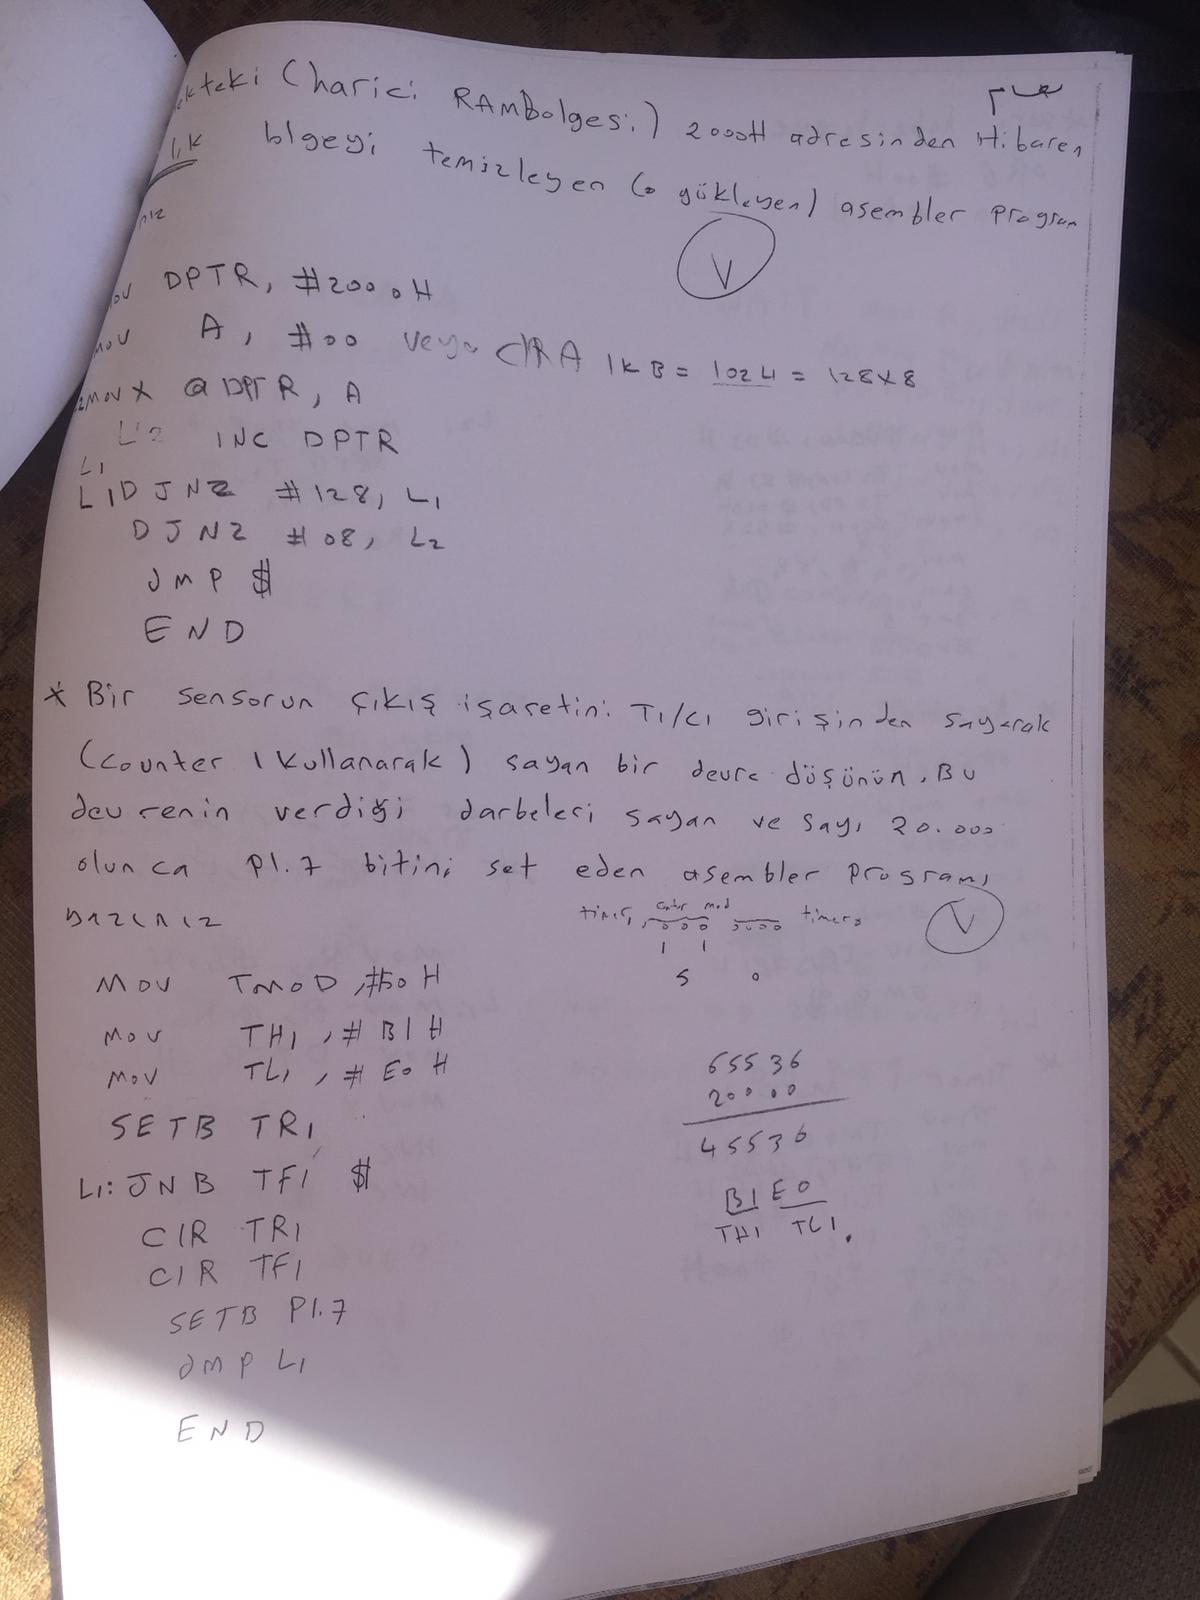 مهم
ekteki (harici RAMBolgesi) 2000H adresinden itibaren
1,K blgeyi temizleyen (0 yükleyen) asembler program
nız
V
mov DPTR, #2000H
mov A, #00 veya ClRA 1KB = 1024 = 128x8
movx @DPTR, A
L2 INC DPTR
L1
L1DJNZ #128, L1
DJNZ #08, L2
JMP $
END
* Bir sensorun çıkış işaretini T1/C1 girişinden sayarak
(counter 1 kullanarak) sayan bir devre düşünün. Bu
devrenin verdiği darbeleri sayan ve sayı 20.000
olunca P1.7 bitini set eden asembler programı
yazınız
timer1 contor mod timer0
0 0 0 0000
1 1
5 0
V
MOV TMOD,#50H
MOV TH1,#B1H
MOV TL1,#E0H
SETB TR1
L1: JNB TF1 $
ClR TR1
ClR TF1
SETB P1.7
JMP L1
END
65536
20000
45536
B1 E0
TH1 TL1.